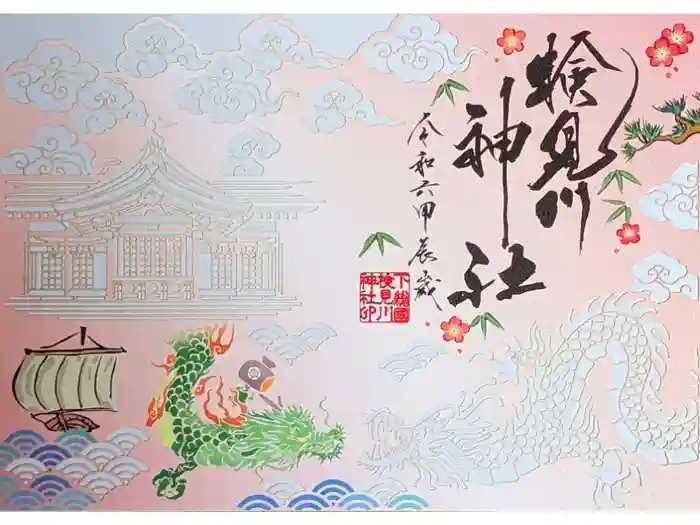 検見川
神社
令和六甲辰歳
下総國
検見川
神社印